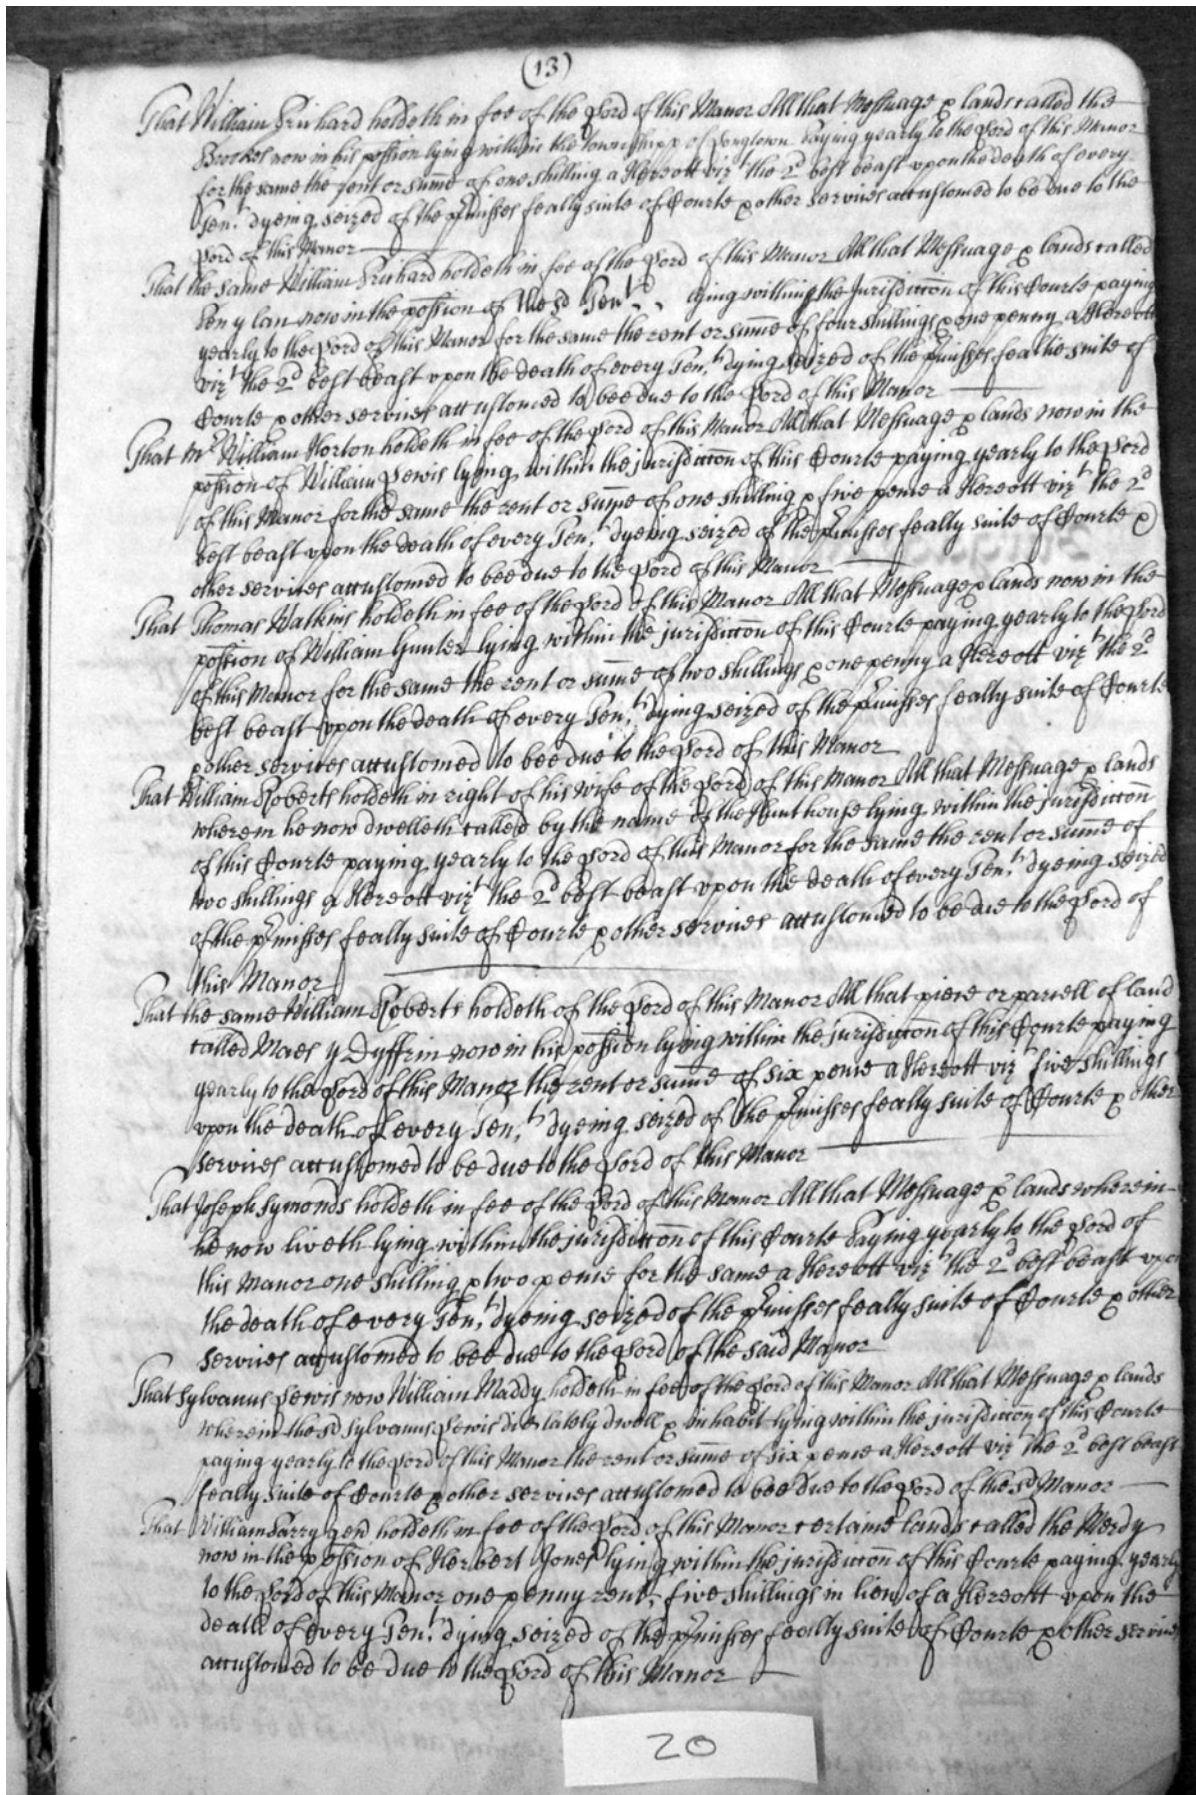 (13)
That William Prichard holdeth in fee of the Lord of this Manor All that Messuage & lands called the
Brookes now in his possion lying within the townshipp of Longtown Paying yearly to the Lord of this Manor
for the same the rent or sume of one shilling a Hereott vizt the 2d best beast upon the death of every
Tent dyeing seized of the pmisses feally suite of Courte & other services accustomed to be due to the
Lord of this Manor
That the same William Prichard holdeth in fee of the Lord of this Manor All that Messuage & lands called
Pen y lan now in the possion of the sd Tent lying within the Jurisdiccon of this Courte paying
yearly to the Lord of this Manor for the same the rent or sume of four shillings & one penny a Hereott
vizt the 2d best beast upon the death of every Tent dying seized of the pmisses fealtie suite of
Courte & other services accustomed to bee due to the Lord of this Manor
That Mr William Horton holdeth in fee of the Lord of this Manor All that Messuage & lands now in the
possion of William Lewis lying within the jurisdiccon of this Courte paying yearly to the Lord
of this Manor for the same the rent or sume of one shilling & five pence a Hereott vizt the 2d
best beast upon the death of every Tent dyeing seized of the pmisses feally suite of Courte &
other services accustomed to bee due to the Lord of this Manor
That Thomas Watkins holdeth in fee of the Lord of this Manor All that Messuage & lands now in the
possion of William Gunter lying within the jurisdiccon of this Courte paying yearly to the Lord
of this Manor for the same the rent or sume of two shillings & one penny a Hereott vizt the 2d
best beast upon the death of every Tent dying seized of the pmisses feally suite of Courte
& other services accustomed to bee due to the Lord of this Manor
That William Roberts holdeth in right of his wife of the Lord of this Manor All that Messuage & lands
wherein he now dwelleth called by the name of the Hunt house lying within the jurisdiccon
of this Courte paying yearly to the Lord of this Manor for the same the rent or sume of
two shillings a Hereott vizt the 2d best beast upon the death of every Tent dyeing seized
of the pmisses feally suite of Courte & other services accustomed to be due to the Lord of
this Manor
That the same William Roberts holdeth of the Lord of this Manor All that piece or parcell of land
called Maes y Dyffrin now in his possion lying within the jurisdiccon of this Courte paying
yearly to the Lord of this Manor the rent or sume of six pence a Hereott vizt five shillings
upon the death of every Tent dyeing seized of the pmisses feally suite of Courte & other
services accustomed to be due to the Lord of this Manor
That Joseph Symonds holdeth in fee of the Lord of this Manor All that Messuage & lands wherein
he now liveth lying within the jurisdiccon of this Courte Paying yearly to the Lord of
this Manor one shilling & two pence for the same a Hereott vizt the 2d best beast upon
the death of every Tent dyeing seized of the pmisses feally suite of Courte & other
services accustomed to bee due to the Lord of the said Manor
That Sylvanus Lewis now William Maddy holdeth in fee of the Lord of this Manor All that Messuage & lands
wherein the sd Sylvanus Lewis did lately dwell & inhabit lying within the jurisdiccon of this Courte
paying yearly to the Lord of this Manor the rent or sume of six pence a Hereott vizt the 2d best beast
feally suite of Courte & other services accustomed to bee due to the Lord of the sd Manor
That William Parry gen holdeth in fee of the Lord of this Manor certaine lands called the Werdy
now in the possion of Herbert Jones lying within the jurisdiccon of this Courte paying yearly
to the Lord of this Manor one penny rent, five shillings in lieu of a Hereott upon the
death of every Tent dying seized of the pmisses feally suite of Courte & other services
accustomed to be due to the Lord of this Manor
20